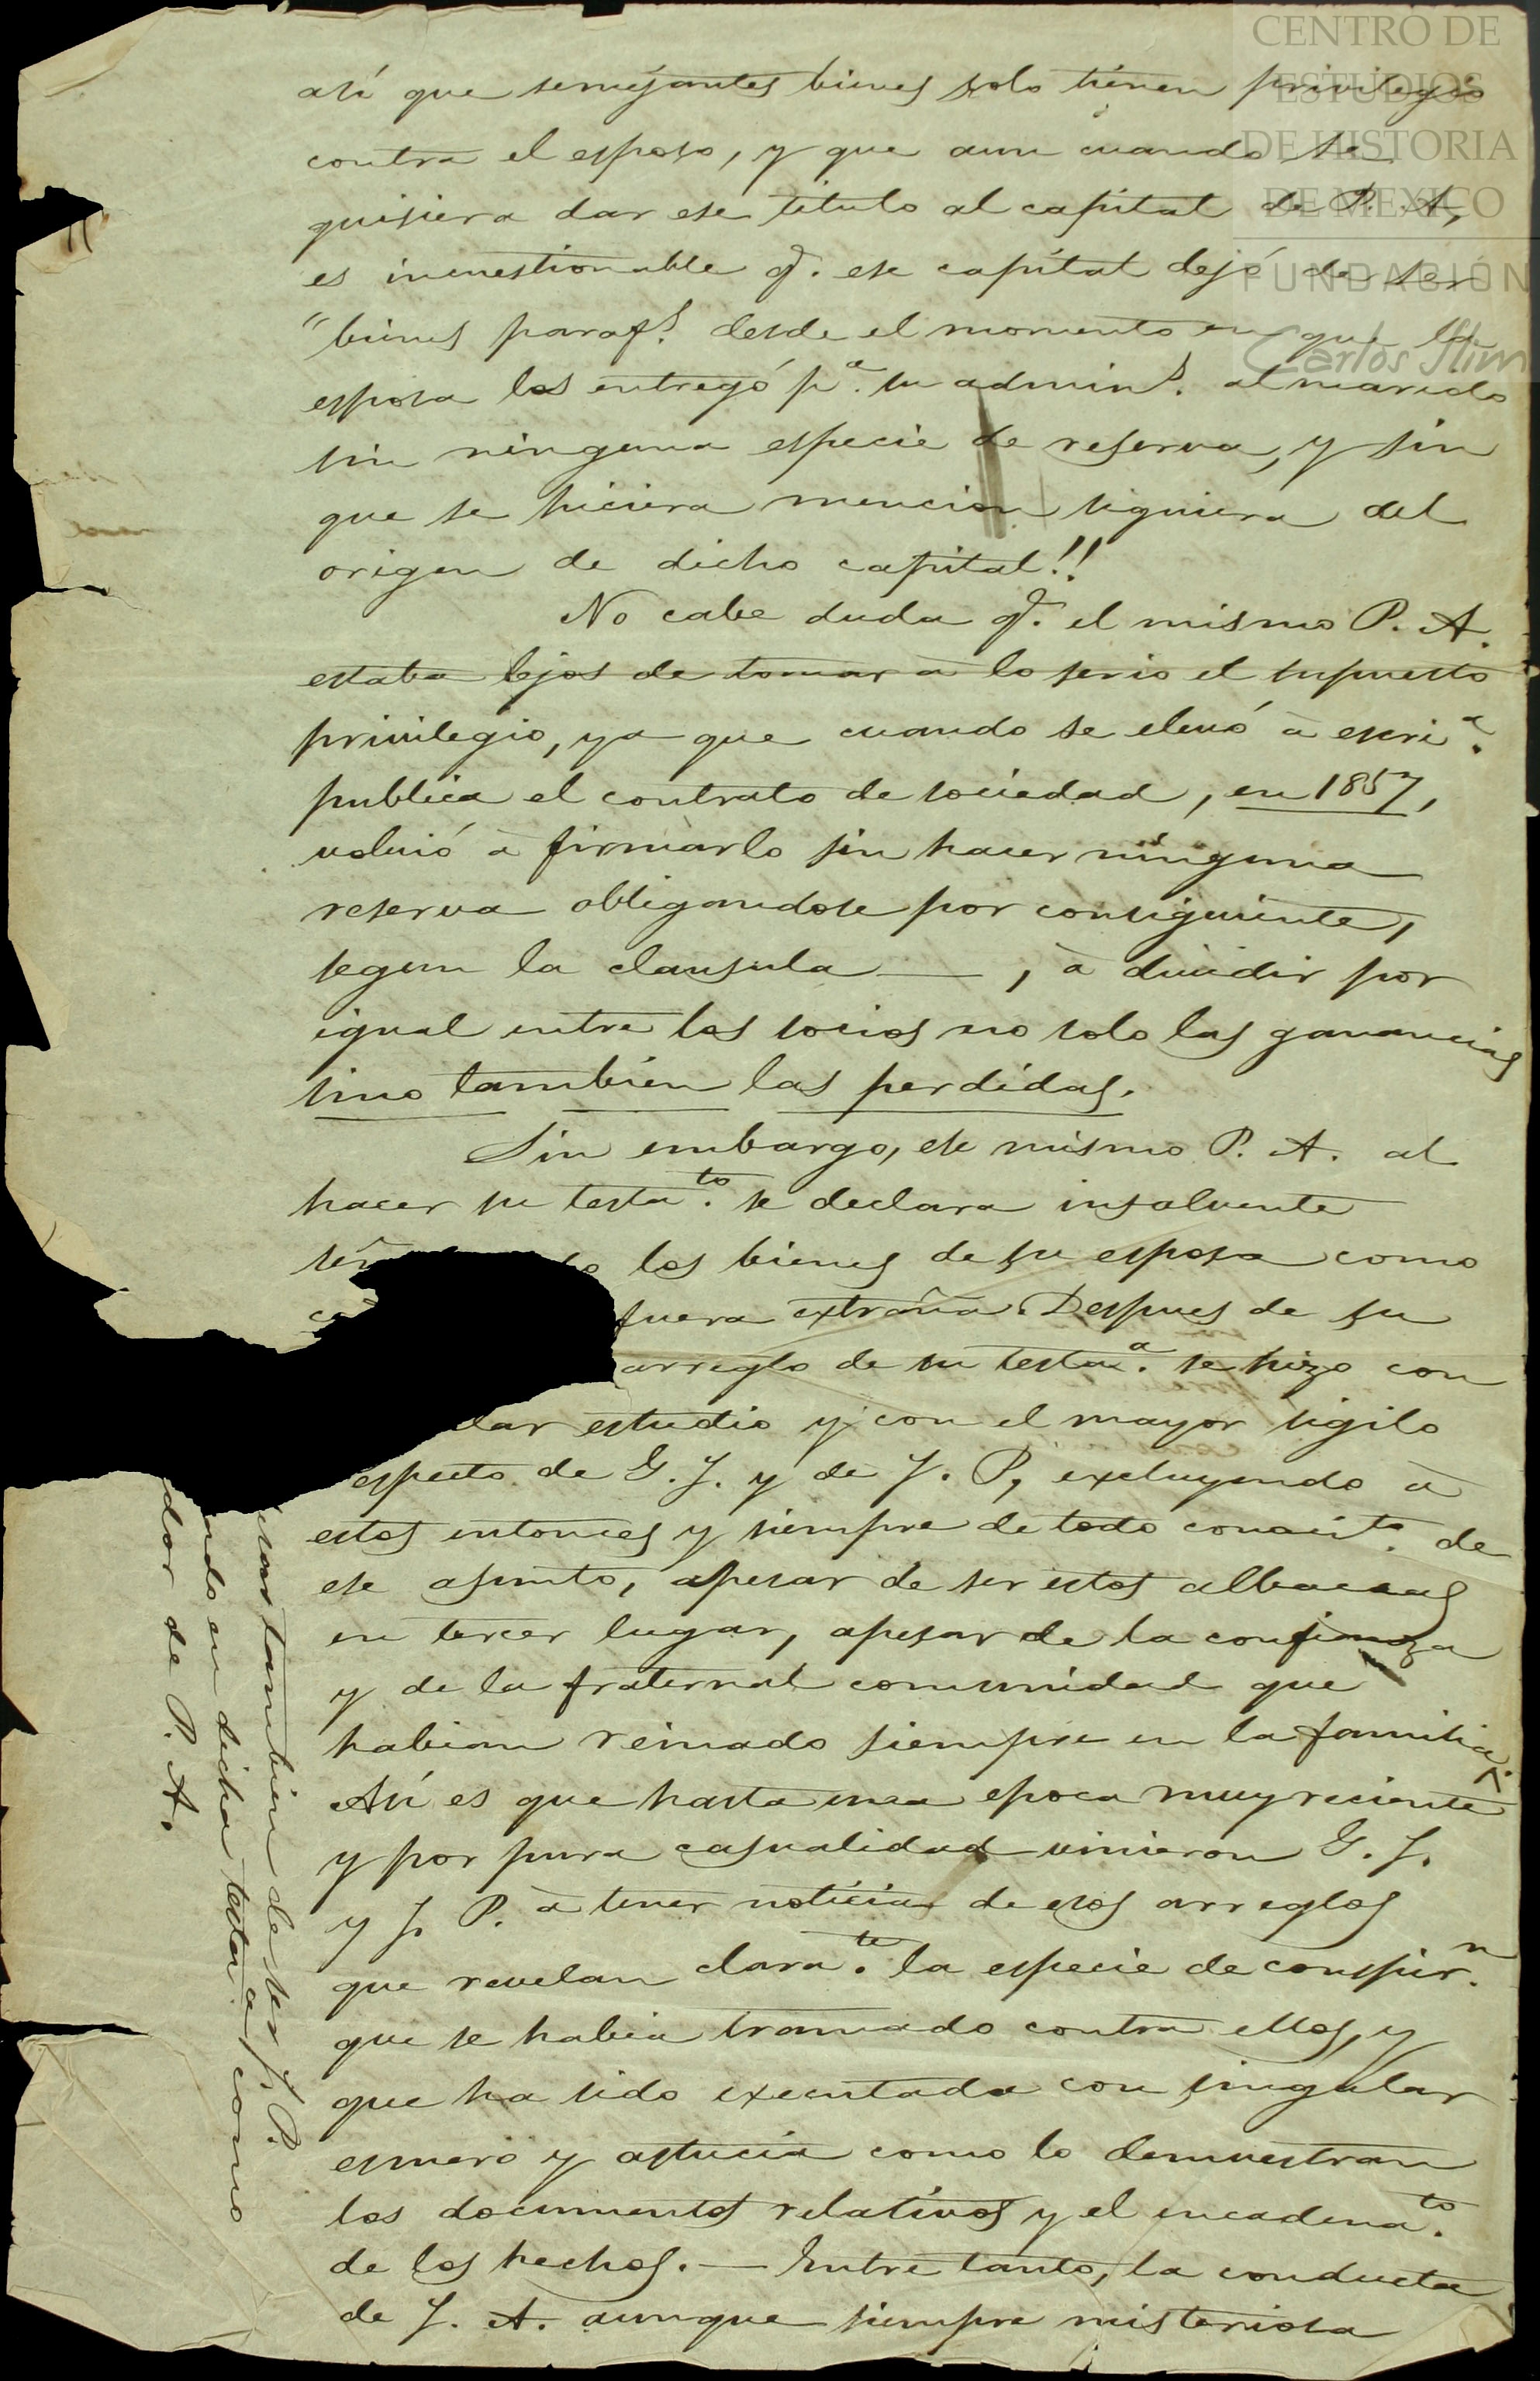 CENTRO DE
ESTUDIOS
DE HISTORIA
DE MEXICO
FUNDACIÓN
Carlos Slim
así que semejantes bienes solo tienen privilegio
contra el esposo, y que aun cuando se
quisiera dar ese titulo al capital de P. A,
es incuestionable q.e ese capital dejó de ser
"bienes paraf.s desde el momento en que la
esposa los entregó p.a su admin.n al marido
sin ninguna especie de reserva, y sin
que se hiciera mencion siquiera del
origen de dicho capital!!
No cabe duda q.e el mismo P. A.
estaba lejos de tomar a lo serio el supuesto
privilegio, ya que cuando se elevó à escri.a
publica el contrato de sociedad, en 1857,
volvió à firmarlo sin hacer ninguna
reserva obligandose por consiguiente,
segun la clausula —, à dividir por
igual entre los socios no solo las ganancias
sino tambien las perdidas.
Sin embargo, ese mismo P. A. al
hacer su testa.to se declara insolvente
los bienes de su esposa como
fuera extraña. Despues de su
arreglo de su testa.a se hizo con
lar estudio y con el mayor sigilo
especto de G. J. y de J. P, excluyendo à
estos entonces y siempre de todo conocit.o de
ese asunto, apesar de ser estos albaceas
en tercer lugar, apesar de la confianza
y de la fraternal comunidad que
habian reinado siempre en la familia.
Asi es que hasta una epoca muy reciente
y por pura casualidad vinieron G. J.
y J. P. à tener noticias de esos arreglos
que revelan clara.te la especie de conspir.n
que se habia tramado contra ellos, y
que ha sido executada con singular
esmero y astucia como lo demuestran
los documentos relativos y el encadena.to
de los hechos. — Entre tanto, la conducta
de J. A. aunque siempre misteriosa
tambien de ser J. P.
ndo en dicha testa.a como
dor de P. A.